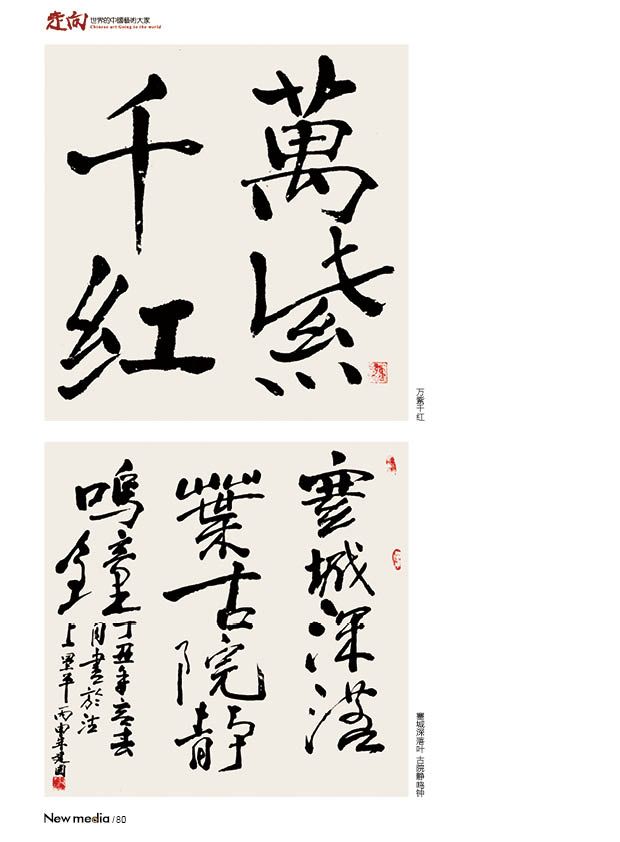 走向 世界的中國藝術大家
Chinese art Going to the world
萬紫
千红
万紫千红
塞城深落
葉古院静
鳴鐘
丁丑年
書於
塞城深落叶 古院静鸣钟
New media /80